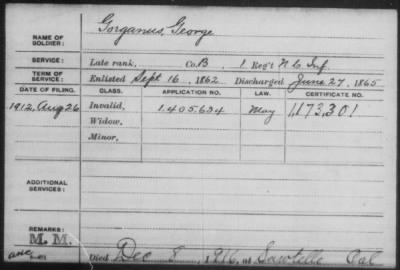 Gorganus, George
NAME OF SOLDIER:
SERVICE: Late rank, Co. B, 1 Reg't N C Inf.
TERM OF SERVICE: Enlisted Sept 16, 1862 Discharged June 27, 1865
DATE OF FILING. CLASS. APPLICATION NO. LAW. CERTIFICATE NO.
1912, Aug 26 Invalid, 1.405.634 May 1,173,301
Widow,
Minor,
ADDITIONAL SERVICES:
REMARKS:
M. M.
Died Dec 8, 1916, at Sawtelle Cal